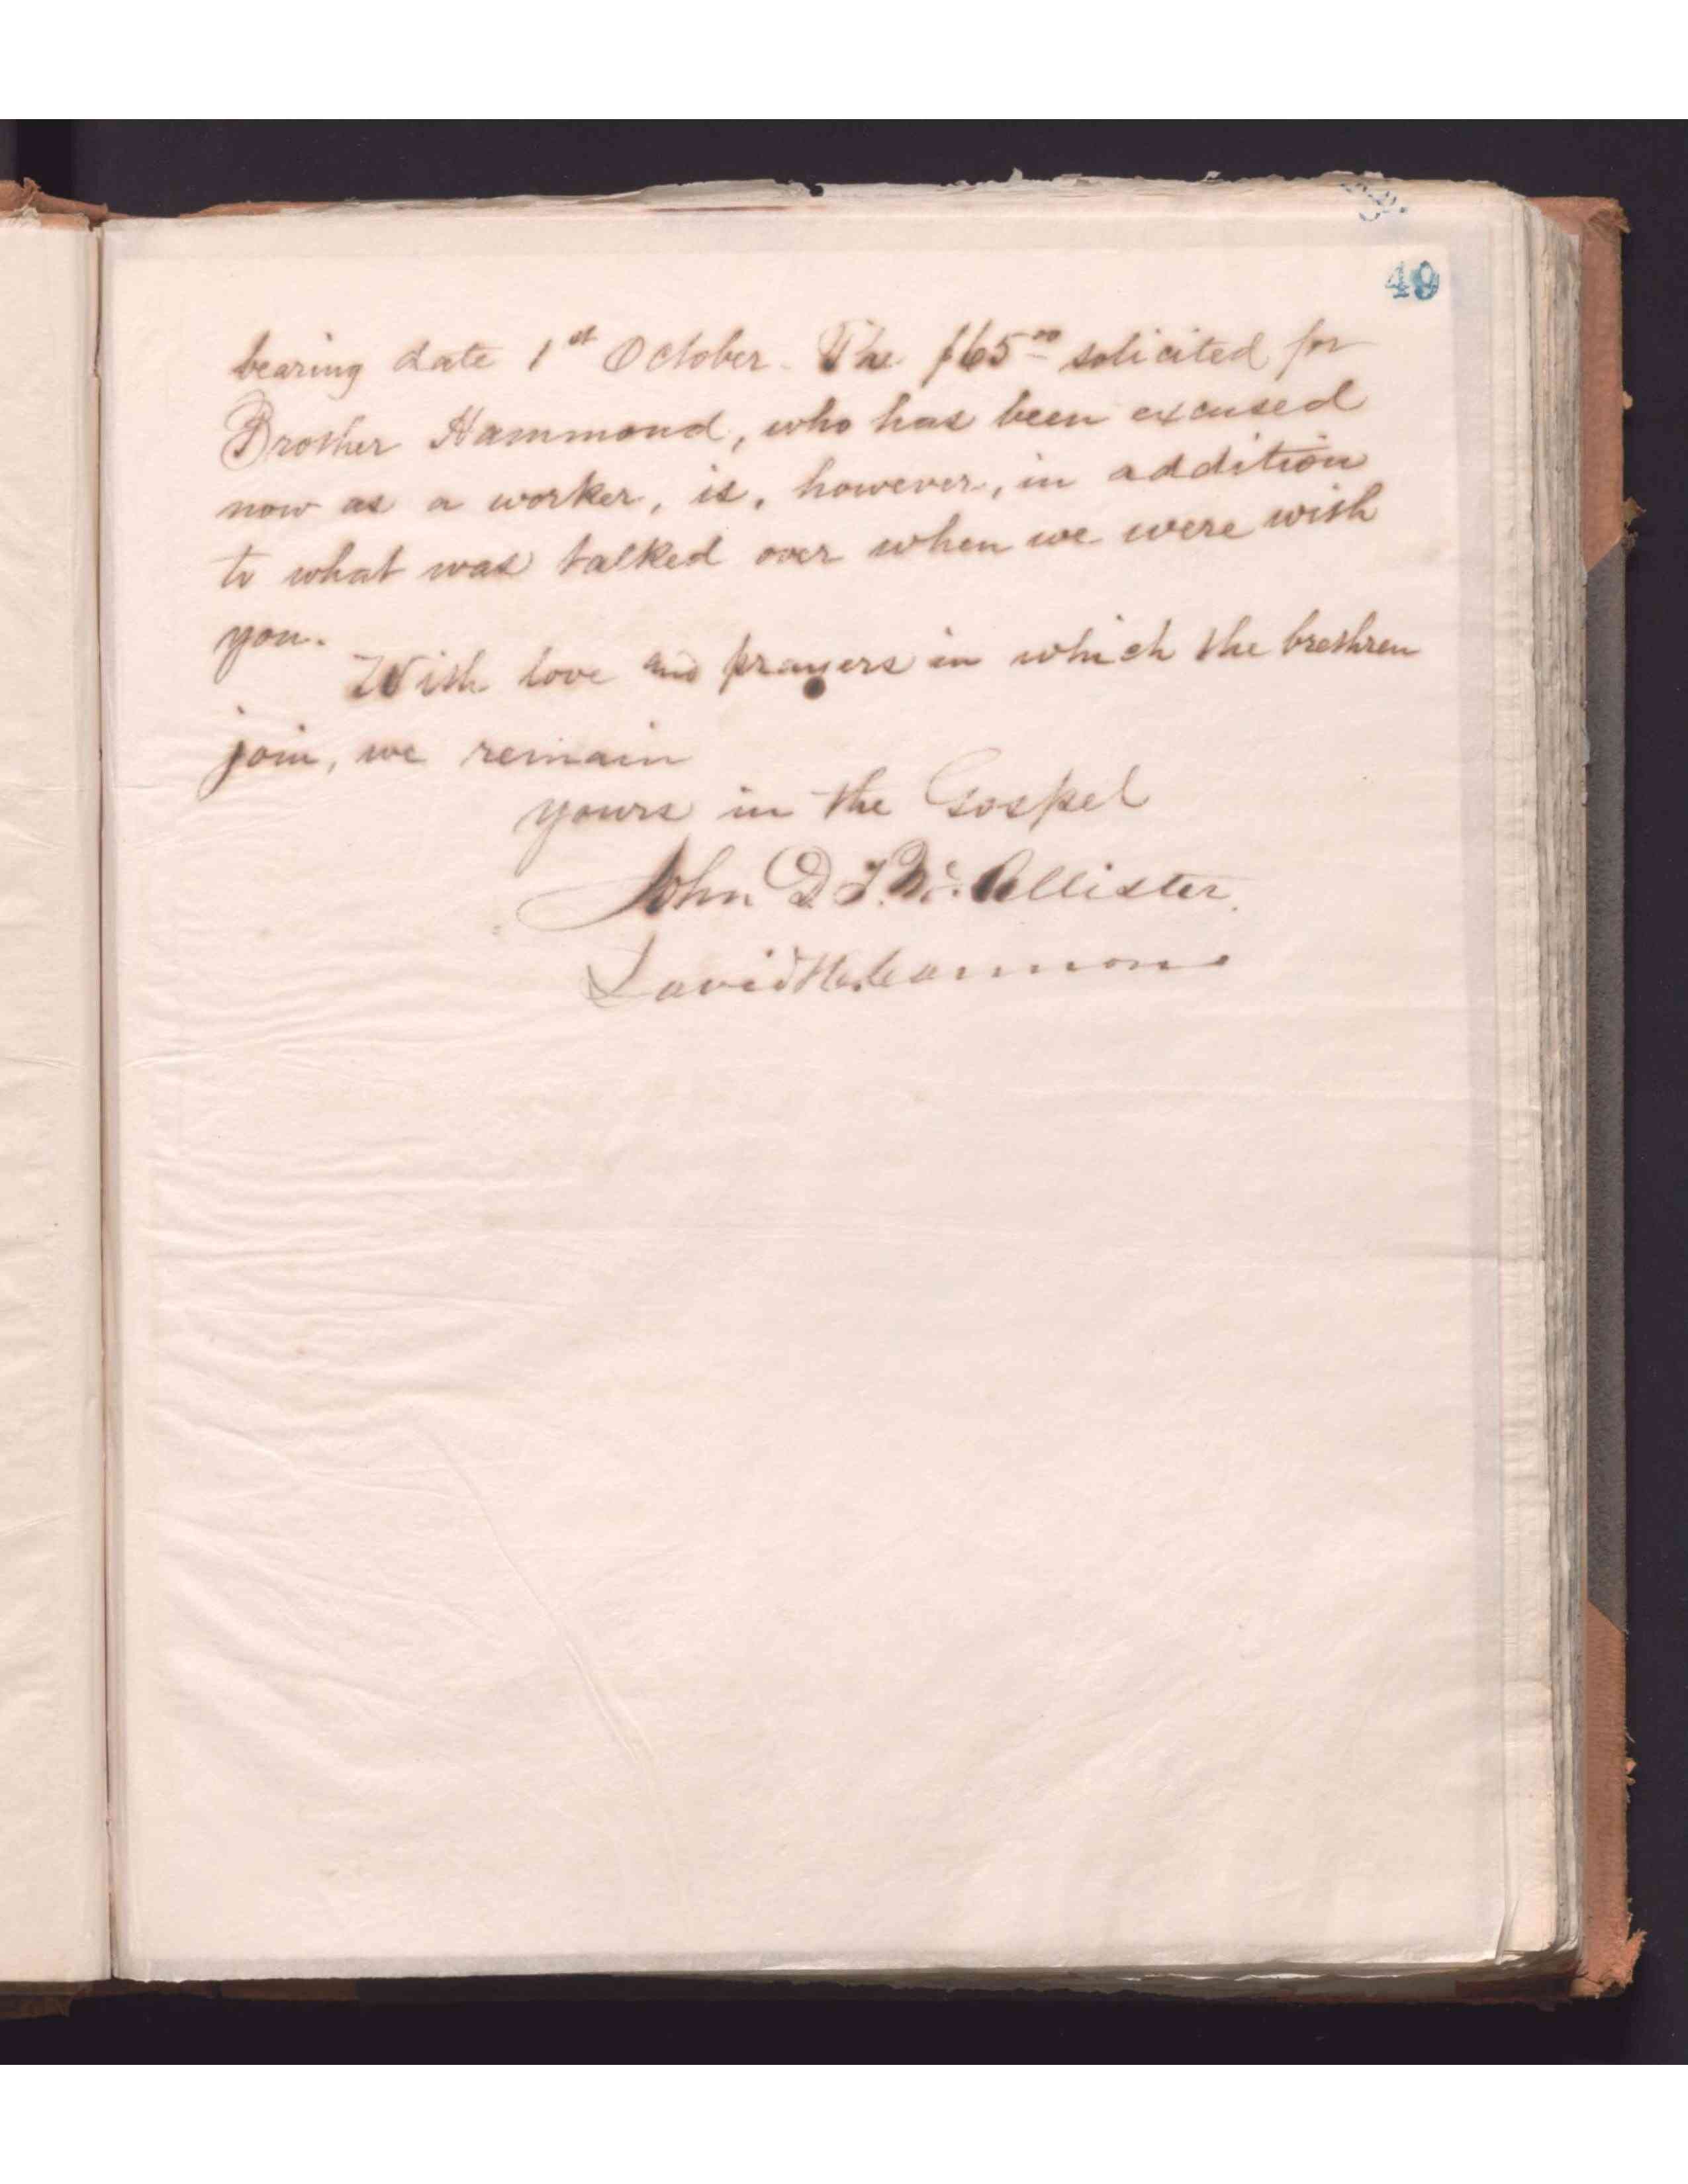 49
bearing date 1st October. The $65.00 solicited for
Brother Hammond, who has been excused
now as a worker, is, however, in addition
to what was talked over when we were with
you.
With love and prayers in which the brethren
join, we remain
yours in the Gospel
John D. T. McAllister.
David H. Cannon